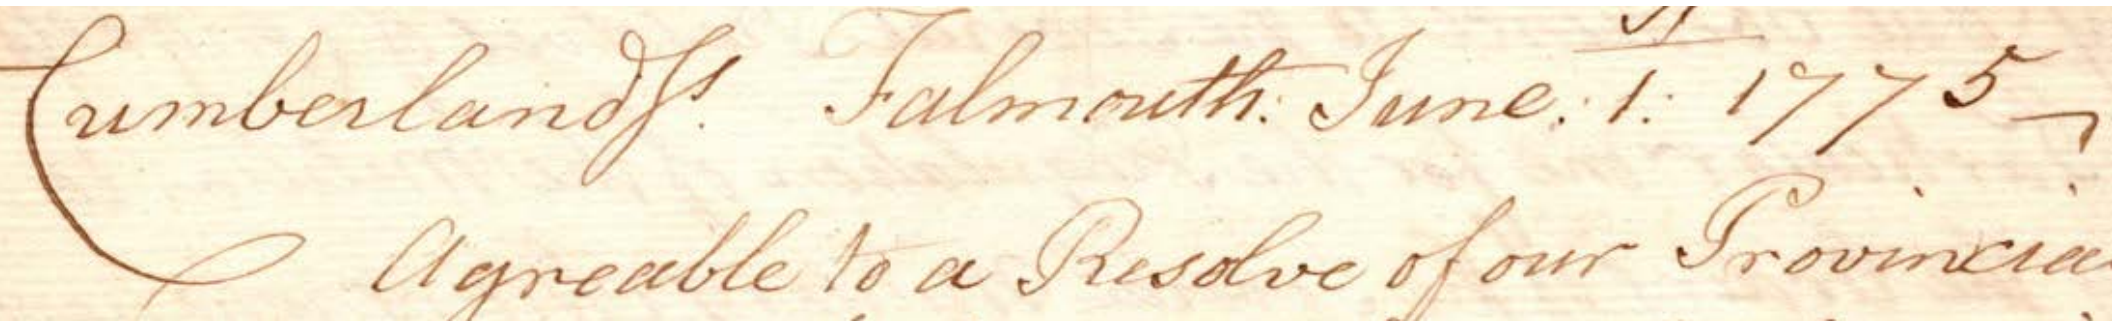 Cumberland ſs. Falmouth: June: 1: 1775
Agreable to a Resolve of our Provincia